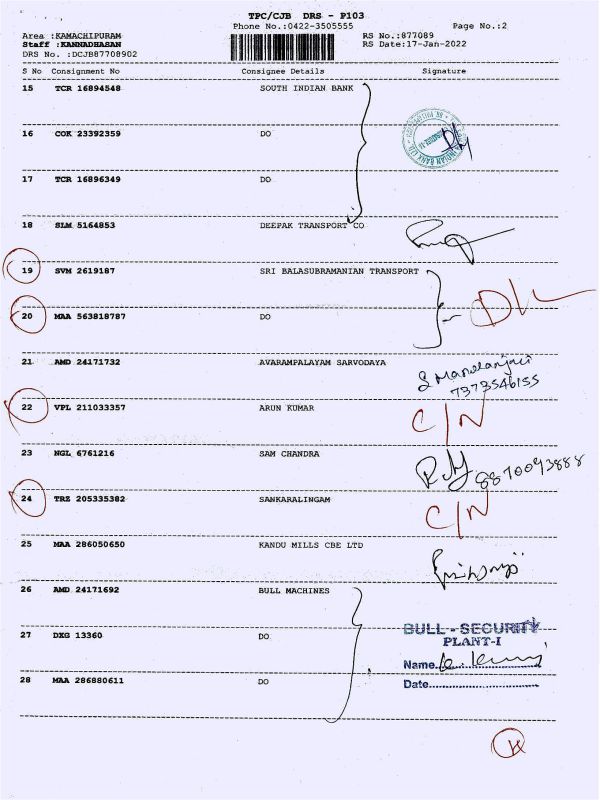 TPC/CJB DRS - P103
Phone No.:0422-3505555 Page No.:2
Area :KAMACHIPURAM RS No.:877089
Staff :KANNADHASAN RS Date:17-Jan-2022
DRS No. :DCJB87708902
S No Consignment No Consignee Details Signature
15 TCR 16894548 SOUTH INDIAN BANK
16 COK 23392359 DO
17 TCR 16896349 DO
18 SLM 5164853 DEEPAK TRANSPORT CO
19 SVM 2619187 SRI BALASUBRAMANIAN TRANSPORT
20 MAA 563818787 DO D/L
21 AMD 24171732 AVARAMPALAYAM SARVODAYA
7373546155
22 VPL 211033357 ARUN KUMAR C/N
23 NGL 6761216 SAM CHANDRA 8870093888
24 TRZ 205335382 SANKARALINGAM C/N
25 MAA 286050650 KANDU MILLS CBE LTD
26 AMD 24171692 BULL MACHINES
BULL - SECURITY
27 DXG 13360 DO PLANT-I
Name
28 MAA 286880611 DO Date